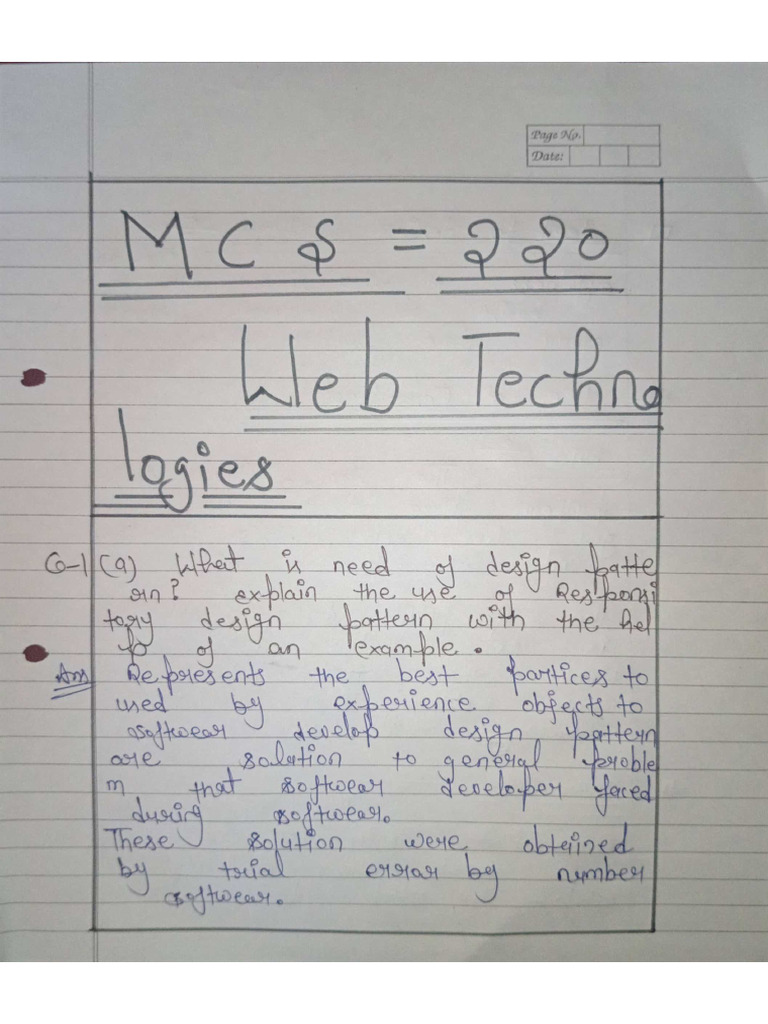 Page No.
Date:
MCS = 220
Web Techno
logies
Q-1 (a) What is need of design patte
rn? explain the use of Responsi
tory design pattern with the hel
p of an example.
Ans Represents the best partices to
used by experience objects to
softwear develop design pattern
are solution to general proble
m that softwear developer faced
during softwear.
These solution were obtained
by trial errar by number
softwear.